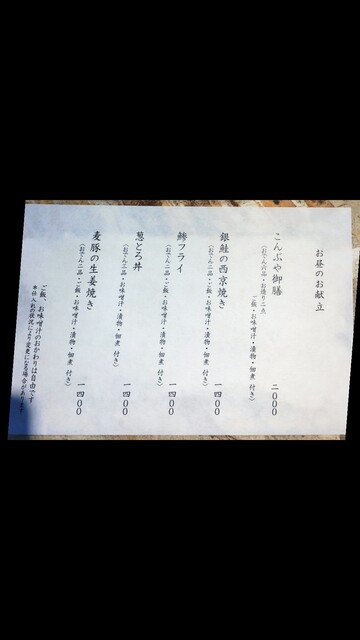 お昼のお献立
こんぶや御膳
二000
（おでん六品・お造り二点
・ご飯・お味噌汁・漬物・佃煮 付き）
銀鮭の西京焼き
一四00
（おでん二品・ご飯・お味噌汁・漬物・佃煮 付き）
鯵フライ
一四00
（おでん二品・ご飯・お味噌汁・漬物・佃煮 付き）
葱とろ丼
一四00
（おでん二品・お味噌汁・漬物・佃煮 付き）
麦豚の生姜焼き
一四00
（おでん二品・ご飯・お味噌汁・漬物・佃煮 付き）
ご飯、お味噌汁のおかわりは自由です
※仕入れの状況により変更になる場合があります